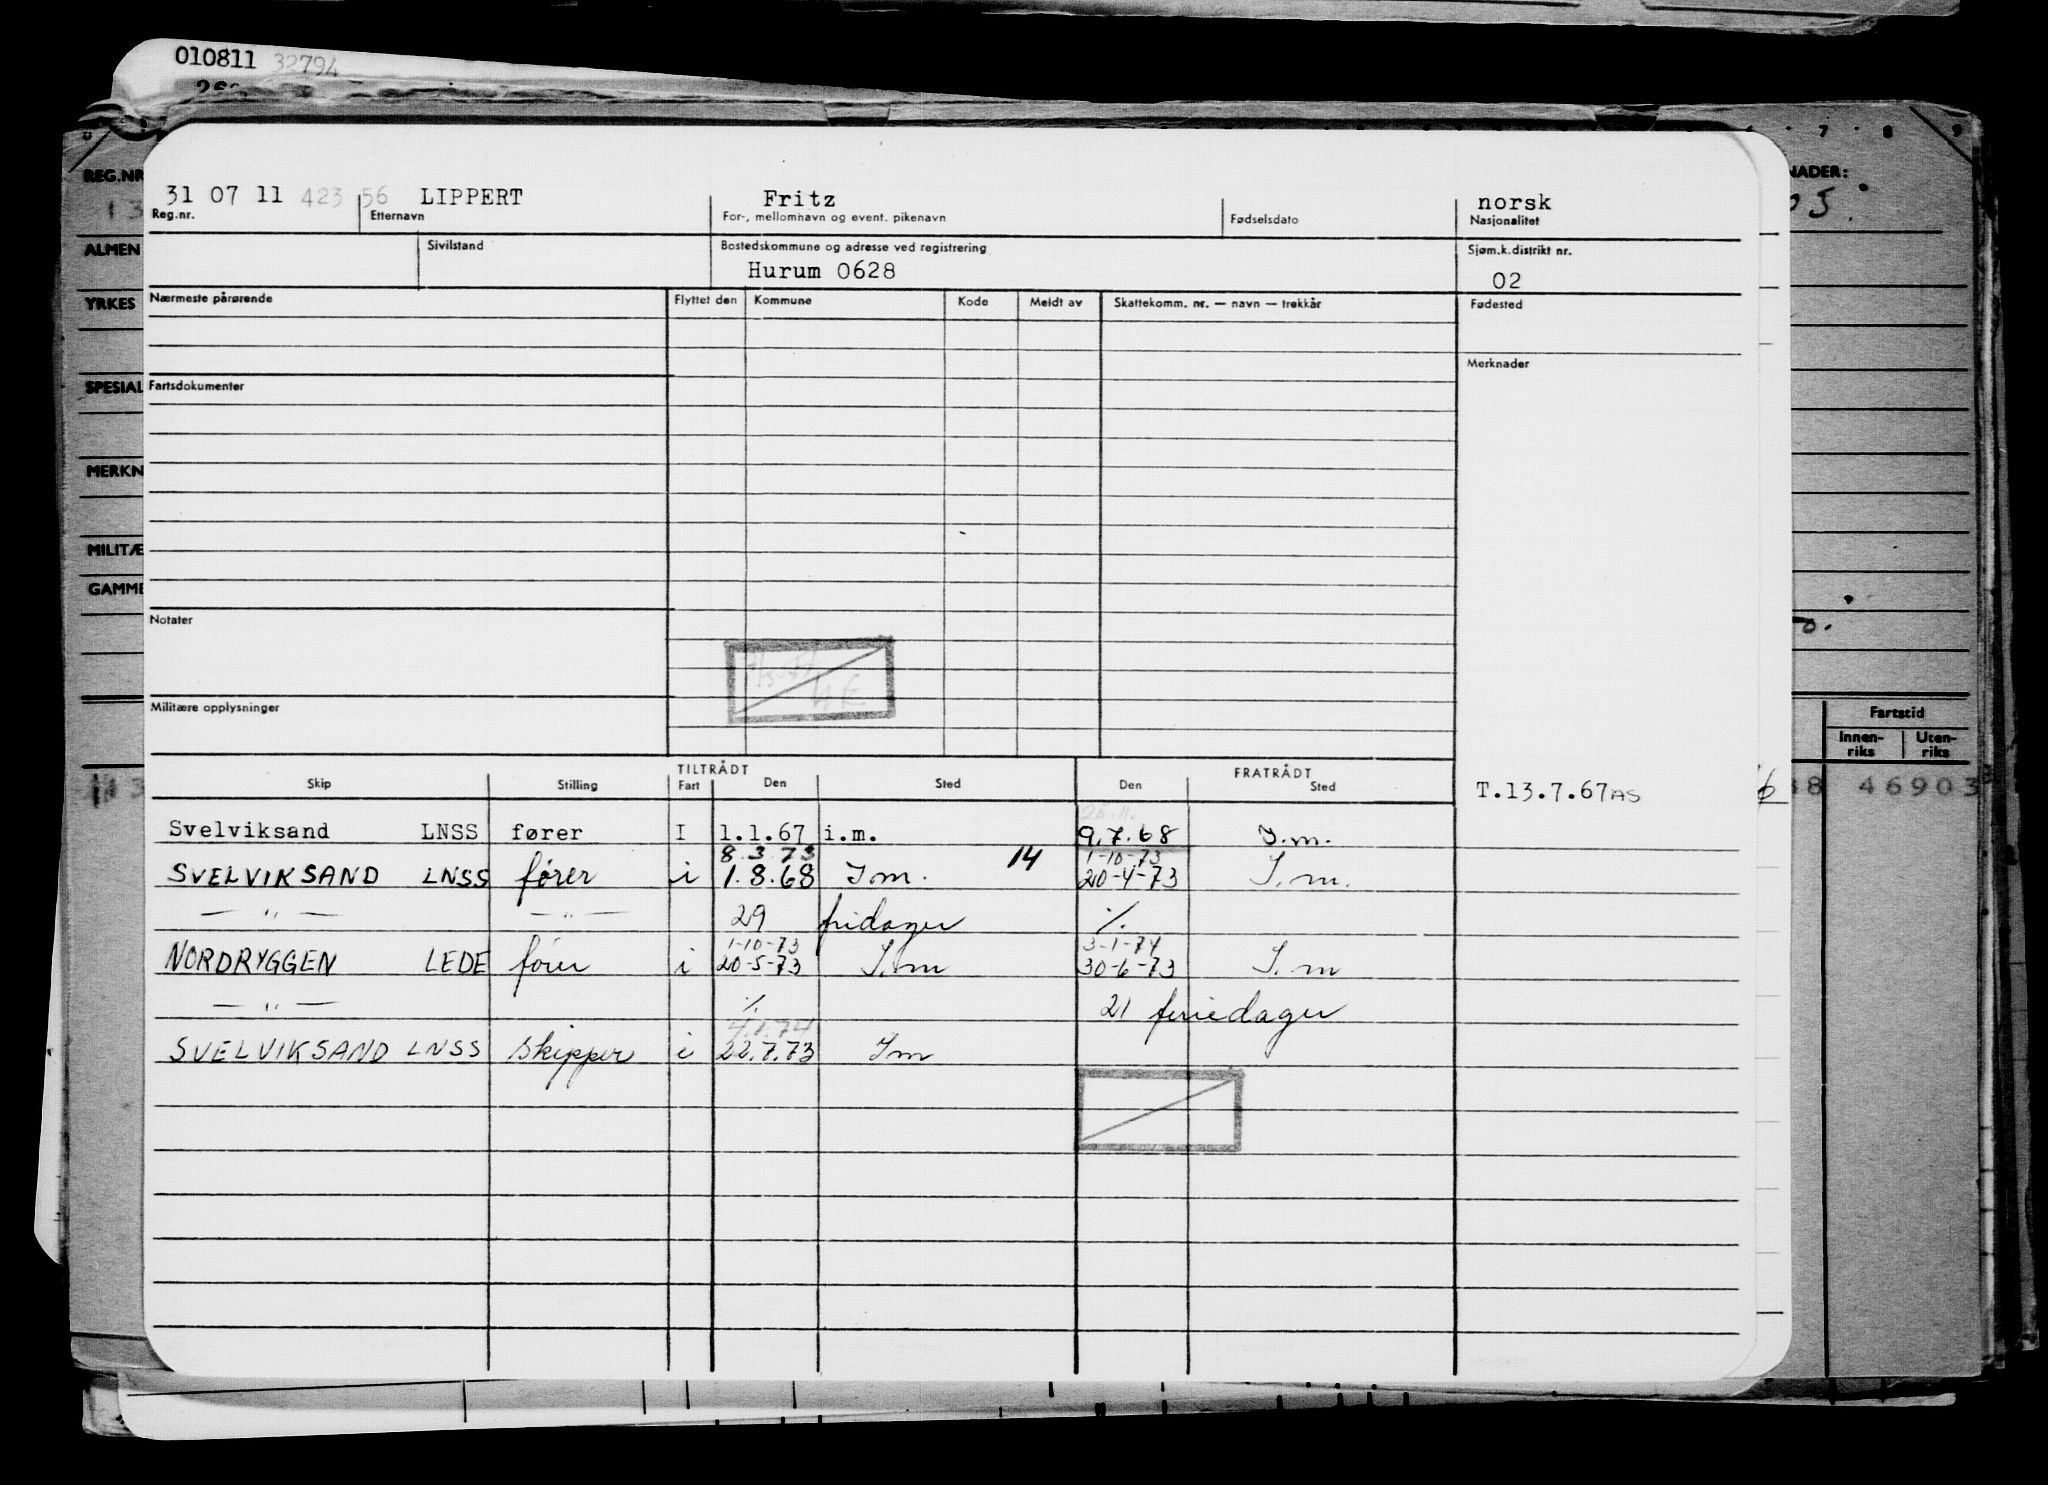 010811 32794
7 8 9
REG.NR
NADER:
13
05.
31 07 11 423 56 LIPPERT Fritz norsk
Reg.nr. Etternavn For-, mellomnavn og event. pikenavn Fødselsdato Nasjonalitet
ALMEN Sivilstand Bostedskommune og adresse ved registrering Sjøm.k.distrikt nr.
Hurum 0628 02
YRKES Nærmeste pårørende Flyttet den Kommune Kode Meldt av Skattekomm. nr. — navn — trekkår Fødested
Merknader
SPESIAL Fartsdokumenter
MERKN
MILITÆ
GAMME
Notater
Militære opplysninger
Fartstid
Innen-riks Uten-riks
TILTRÅDT FRATRÅDT
Skip Stilling Fart Den Sted Den Sted
T.13.7.67AS
38 46903
Svelviksand LNSS fører I 1.1.67 i.m. 9.7.68 I.m.
8.3.73 1-10-73
SVELVIKSAND LNSS fører i 1.8.68 I m. 14 20-4-73 I.m.
— " — — " — 29 fridager %.
1-10-73 3-1-74
NORDRYGGEN LEDE fører i 20-5-73 I.m 30-6-73 I.m
— " — %. 21 feriedager
4.1.74
SVELVIKSAND LNSS skipper i 22.7.73 I m